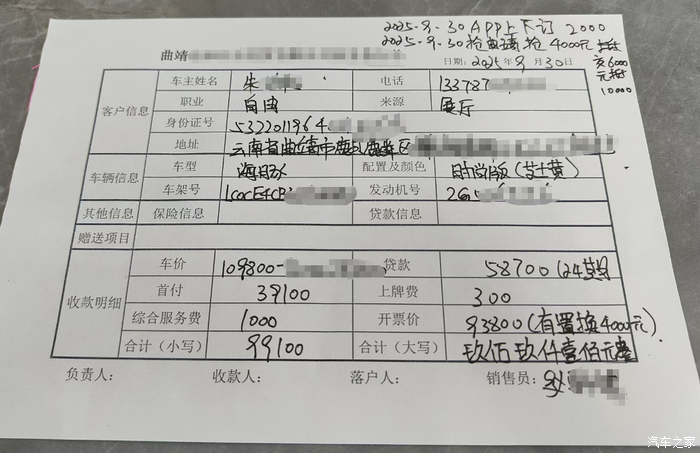 2025.9.30 APP上下订 2000
2025.9.30抢曲靖抢4000元
交6000
元抵
10000
曲靖
日期：2025年9月30日
客户信息 车主姓名 朱 电话 133787
职业 自由 来源 展厅
身份证号 5322011964
地址 云南省曲靖市
车辆信息 车型 海豚 配置及颜色 时尚版（芝士黄）
车架号 LC0CE4CB 发动机号 26
其他信息 保险信息 贷款信息
赠送项目
收款明细 车价 109800- 贷款 58700（24期）
首付 39100 上牌费 300
综合服务费 1000 开票价 93800（有置换4000元）
合计（小写） 99100 合计（大写） 玖佰玖仟壹佰元整
负责人： 收款人： 落户人： 销售员：
汽车之家